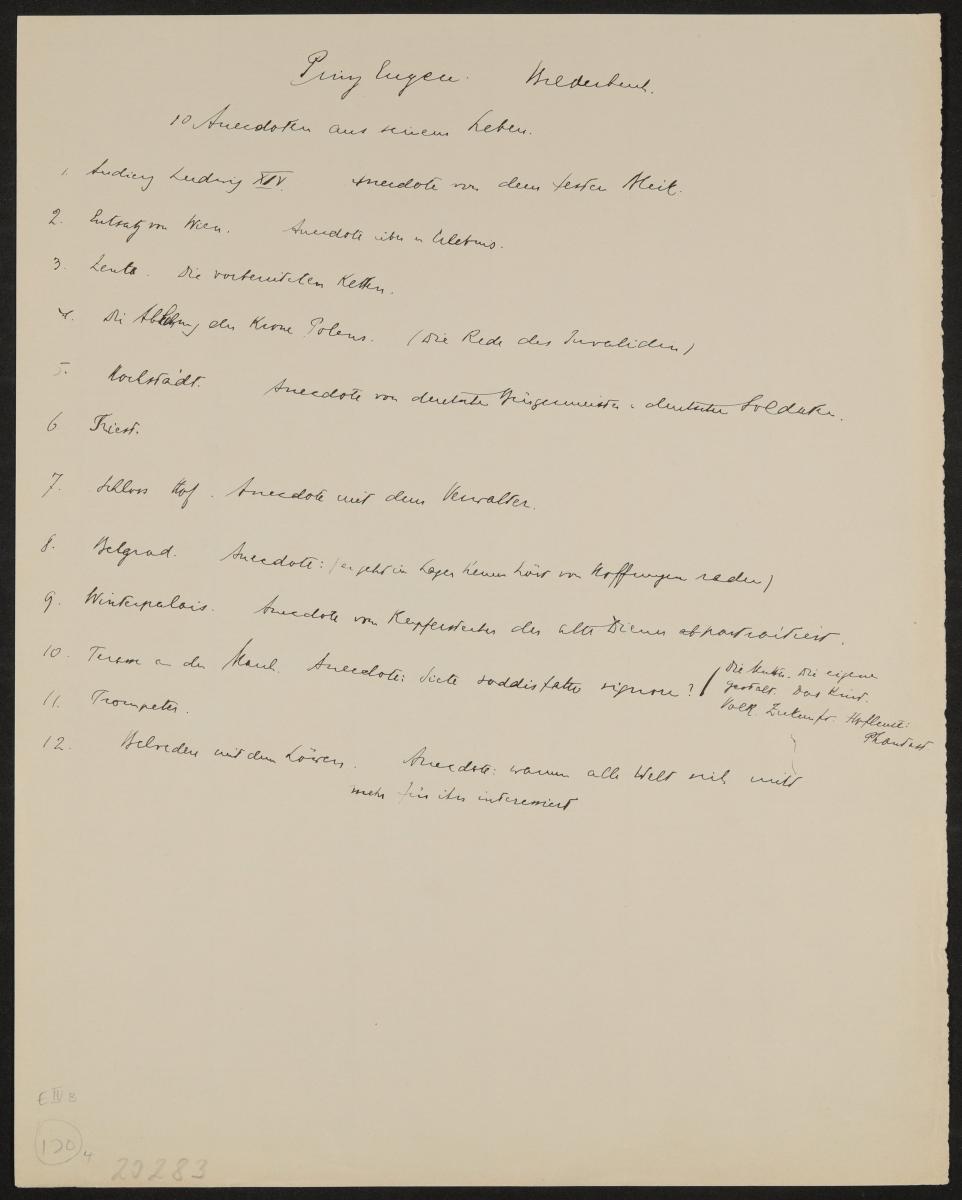 Prinz Eugen. Bilderbuch.
10 Anecdoten aus seinem Leben.
1. Audienz Ludwig XIV. Anecdote von dem
2. Entsatz von Wien. Anecdote über Erlebnis.
3. Zenta. Die vorbereiteten Ketten.
4. Die Ablehnung der Krone Polens. (Die Rede des Invaliden)
5. Hochstädt. Anecdote von deutschen Bürgermeister u. deutschen Soldaten.
6. Triest.
7. Schloss Hof. Anecdote mit dem Verwalter.
8. Belgrad. Anecdote: (er geht im Lager keinen hört von Hoffnungen reden)
9. Winterpalais. Anecdote vom Kupferstecher der alte Diener abportraitiert.
10. Terasse an der Anecdote: Siete soddisfatto signore? / Die Die eigene
gestalt. Das Kind.
Volk. Zukunft. Hofleute:
Phantast
11. Trompeter.
12. Belvedere mit dem Löwen. Anecdote: warum alle Welt sich nicht
mehr für ihn interessiert
E IV B
130 4
20283